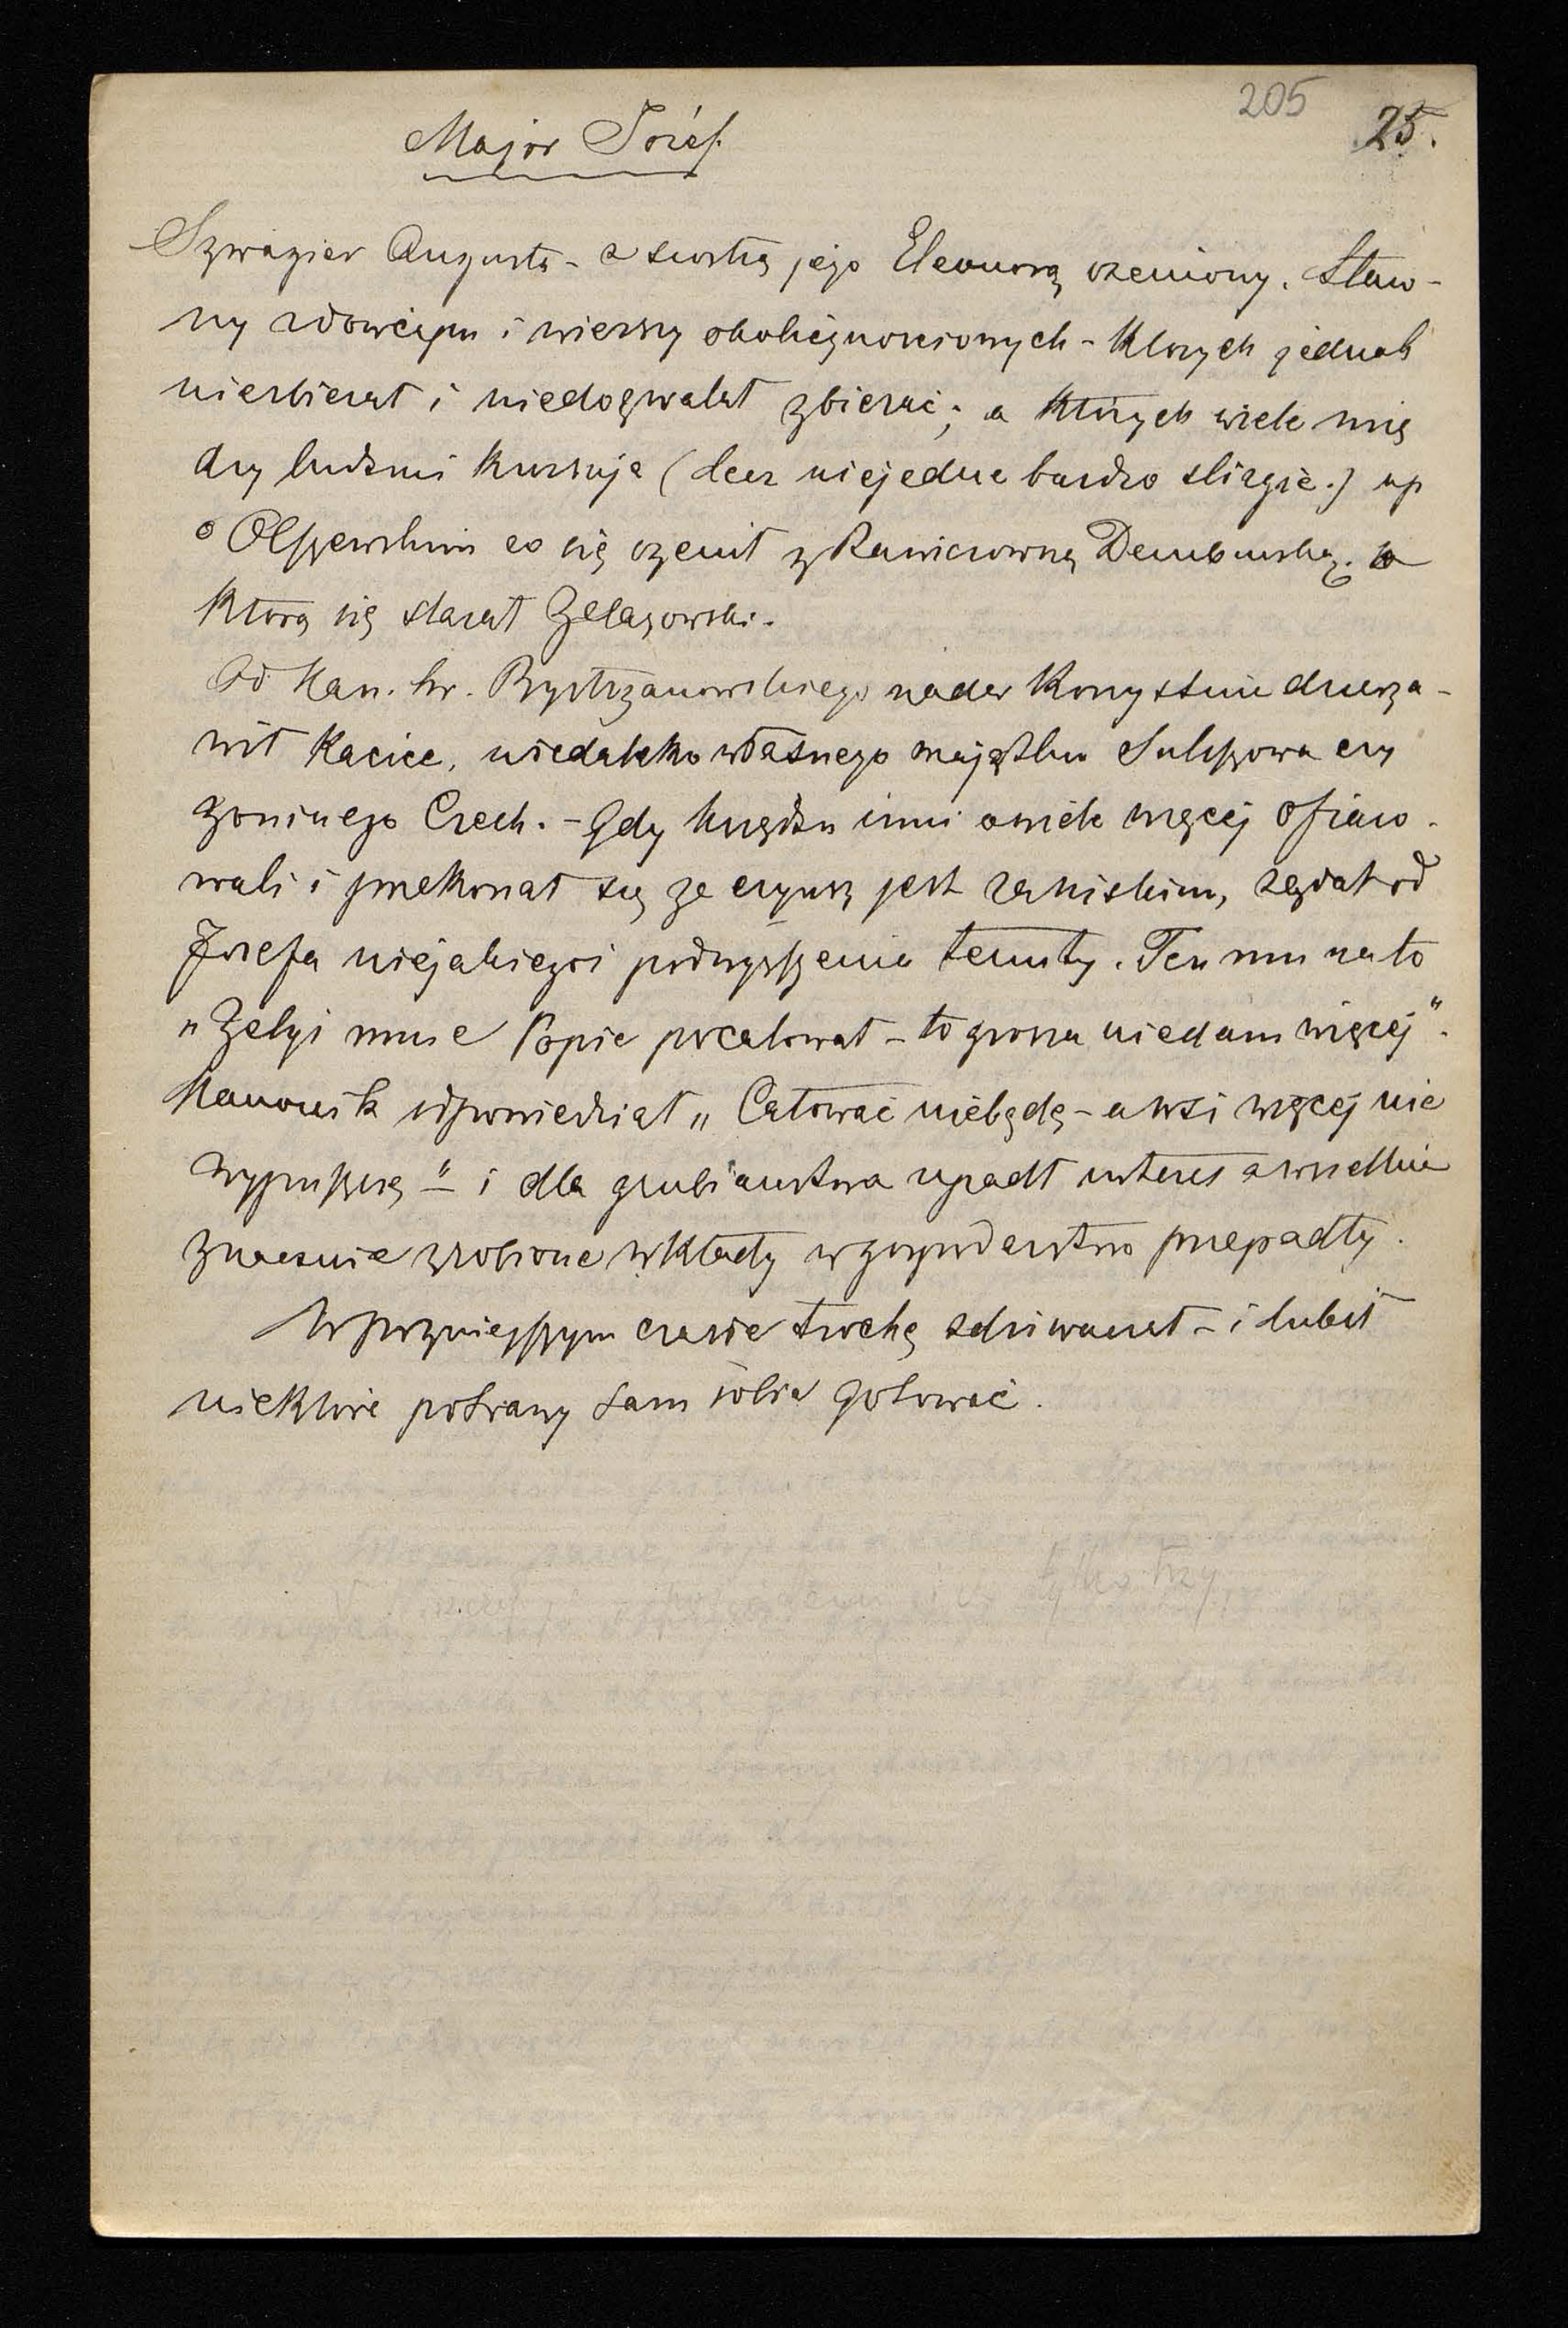 205
25.
Major Józef.
Szwagier Augusta - z siostrą jego Eleonorą ożeniony. Sław-
ny z dowcipu i wierszy okolicznościowych - których jednak
niezbierał i niedozwalał zbierać; a których wiele mię
dzy ludźmi kursuje (lecz niejedne bardzo ślizgie.) np
o Olszewskim co się ożenił z Rawiczowną Dembińską. o
którą się starał Żelazowski.
Od Kan. hr. Bystrzanowskiego nader korzystnie dzierża-
wił Kacice, niedaleko własnego majątku Sułoszowa czy
goninego Czech. - Gdy księdzu inni owiele więcej ofiaro-
wali i przekonał się że czynsz jest zaniskim, żądał od
Józefa niejakiegoś podwyższenia tenuty. Ten mu na to
"Żebyś mnie Popie pocałował - to grosza niedam więcej".
Kanonik odpowiedział "Całować niebędę - a wsi więcej nie
wypuszczę" - i dla grubiaństwa upadł interes a wszelkie
znacznie zrobione wkłady w gospodarstwo przepadły.
W poźniejszym czasie trochę zdziwaczał - i lubił
niektóre potrawy sam sobie gotować.
tylko trzy